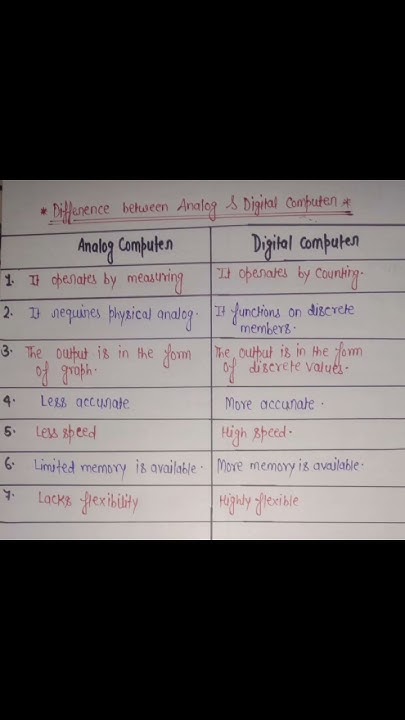 * Difference between Analog & Digital Computer *
Analog Computer
Digital Computer
1. It operates by measuring
It operates by Counting.
2. It requires physical analog.
It functions on discrete
members.
3. The output is in the form
of graph.
The output is in the form
of discrete values.
4. Less accurate
More accurate.
5. Less speed
High speed.
6. Limited memory is available.
More memory is available.
7. Lacks flexibility
Highly flexible